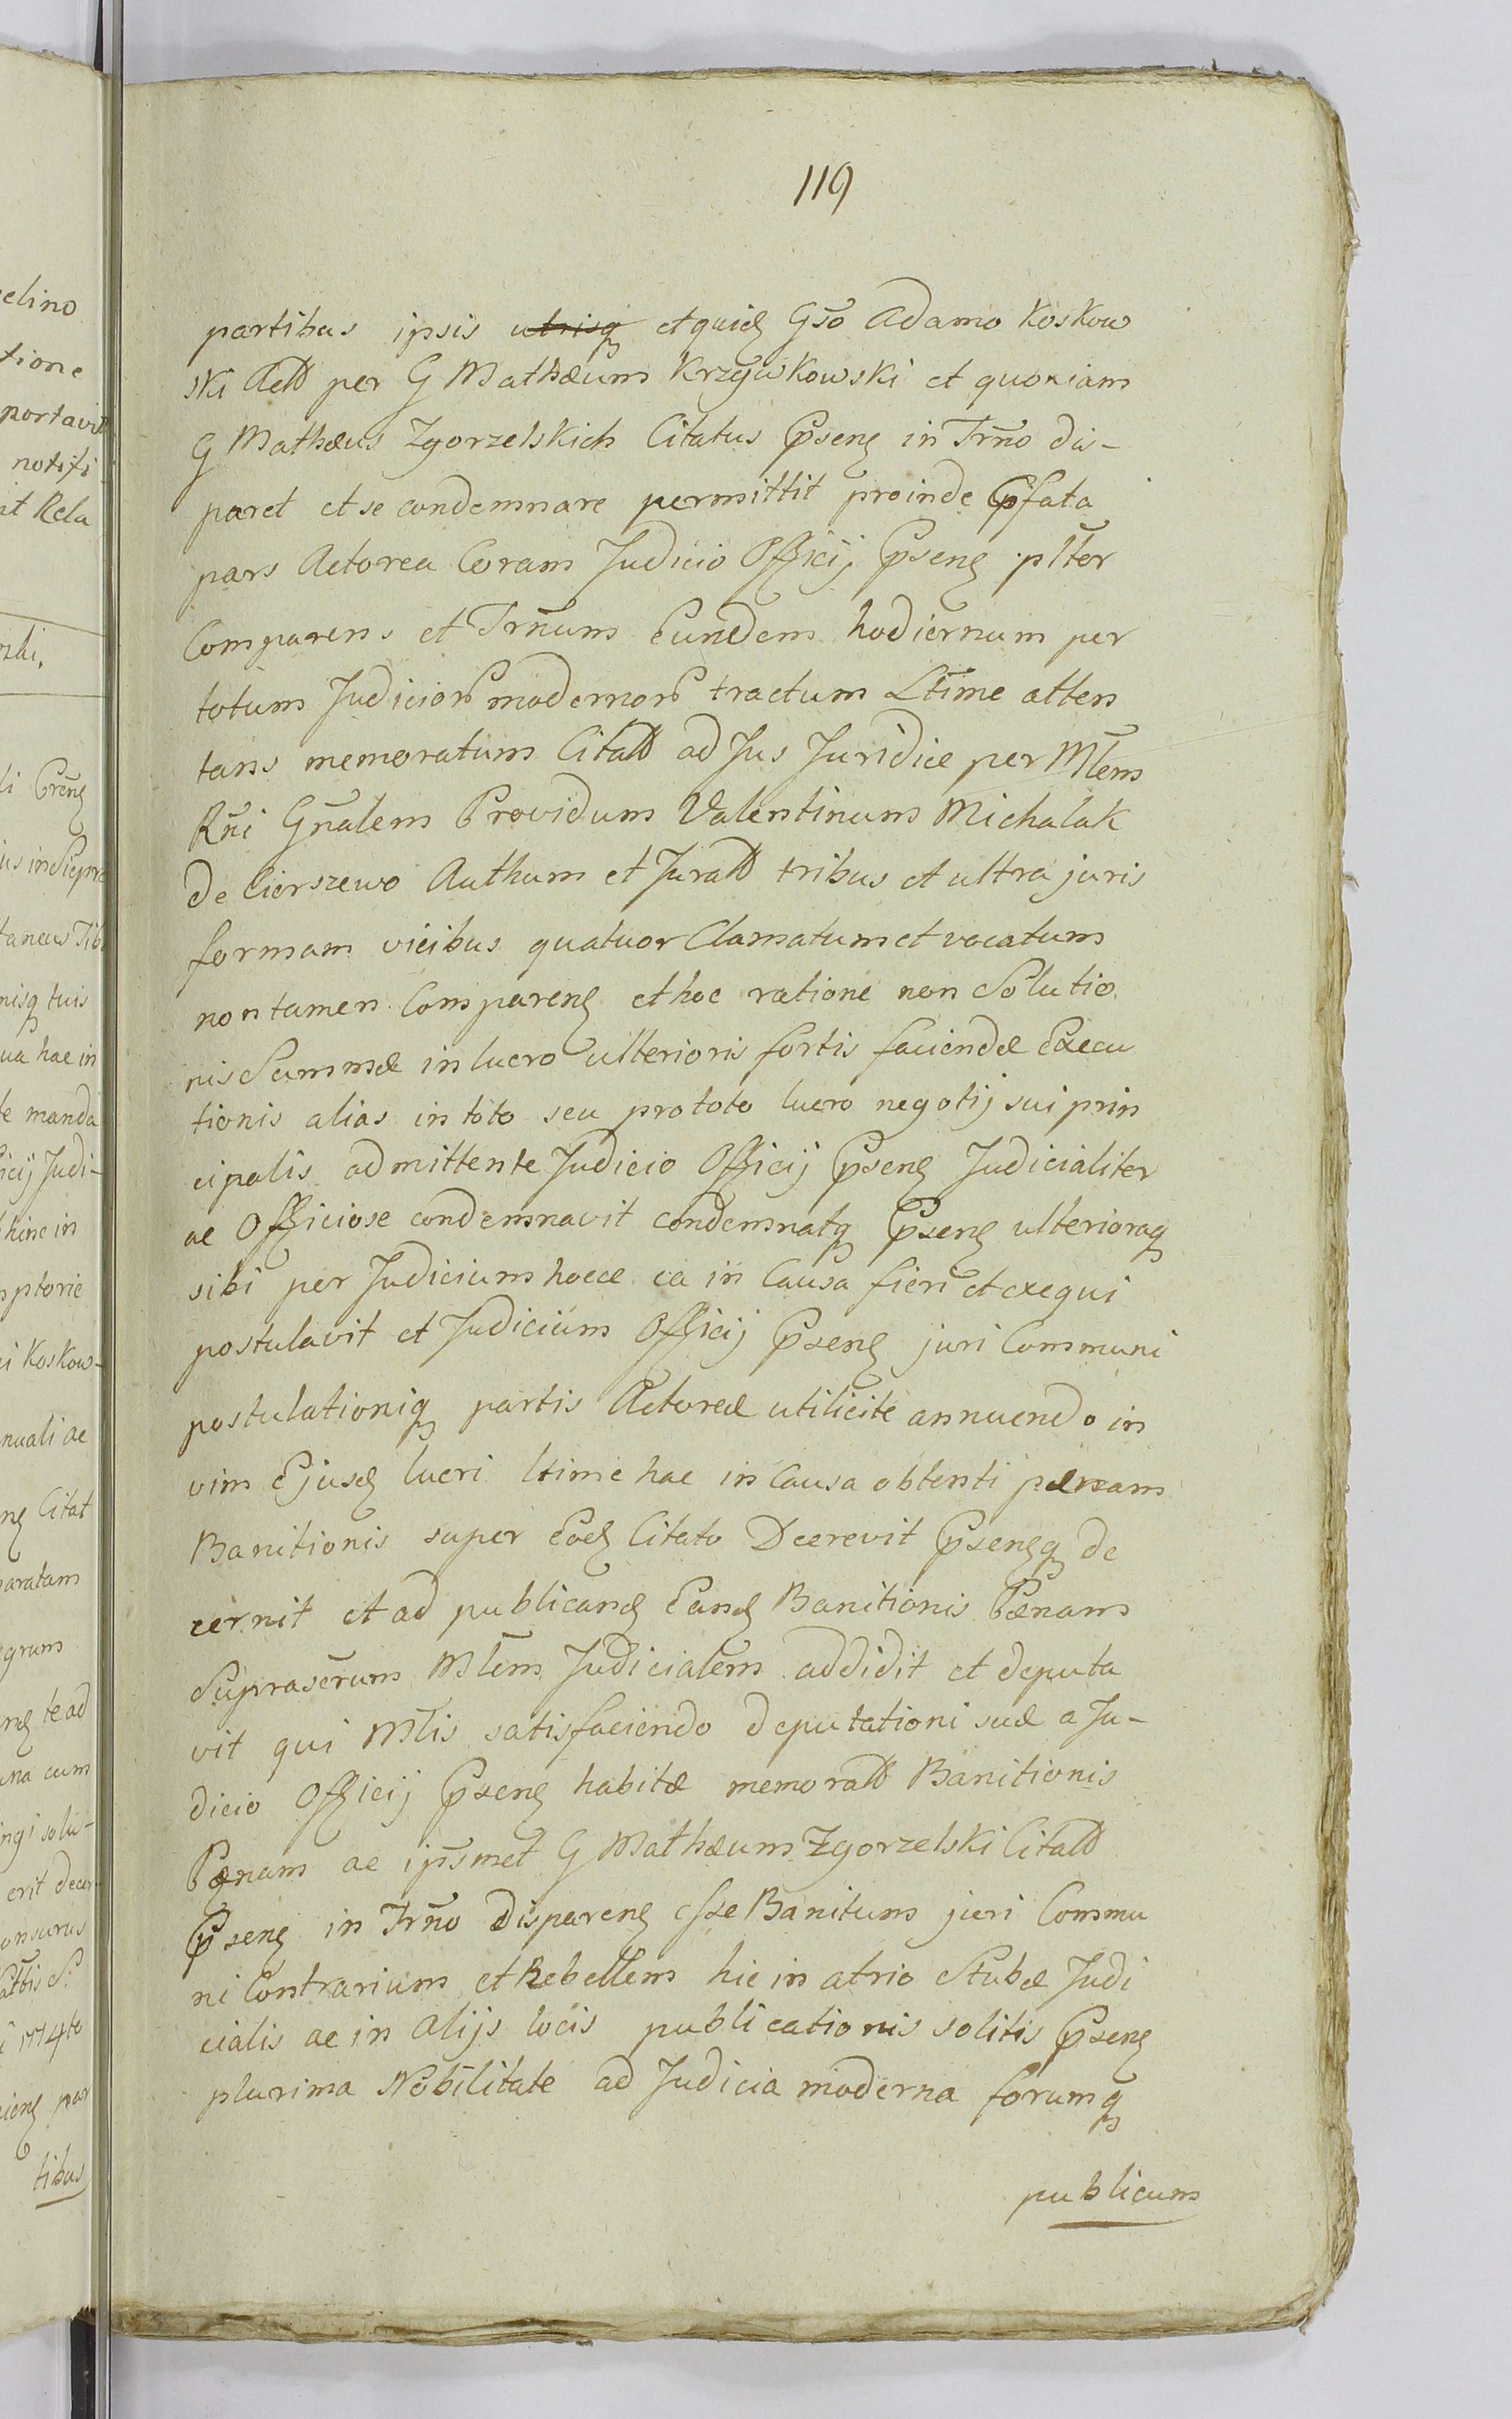 119
partibus ipsis utrisq et quid Gso Adamo Koskow
ski Actt per G Mathæum Krzywkowski et quoniam
G Mathæus Zgorzelskich Citatus Ppsens in Trno dis-
paret et se condemnare permittit proinde Ppfata
pars Actorea Coram Judicio Officij Ppsens plter
Comparens et Trnum Eundem hodiernum per
totum Judicior modernor tractum Ltime atten
tans memoratum Citatt ad Jus Juridice per Mtlem
Rni Gnalem Providum Valentinum Michalak
de Cierszewo Authum et Juratt tribus et ultra juris
formam vicibus quatuor Clamatum et vocatum
non tamen Comparens et hoc ratione non Solutio
nis Summæ in lucro ulterioris fortis faciendæ Execu
tionis alias in toto seu pro toto lucro negotij sui prin
cipalis admittente Judicio Officij Ppsens Judicialiter
ac Officiose condemnavit condemnatq Ppsens ulterioraq
sibi per Judicium hocce ea in Causa fieri et exequi
postulavit et Judicium Officij Ppsens juri Communi
postulationiq partis Actoreæ utilicite annuendo in
vim Ejusd lucri ltime hac in Causa obtenti pænam
Banitionis super Eod Citato Decrevit Ppsensq de
cernit et ad publicand Eand Banitionis Pænam
Suprascrum Mtlem Judicialem addidit et deputa
vit qui Mtlis satisfaciendo deputationi suæ a Ju-
dicio Officij Ppsens habitæ memoratt Banitionis
Pænam ac ipsmet G Mathæum Zgorzelski Citatt
Ppsens in Trno disparens esse Banitum juri Commu
ni Contrarium et Rebellem hic in atrio Stubæ Judi
cialis ac in alijs locis publicationis solitis Ppsens
plurima Nobilitate ad Judicia moderna forumq
publicum
elino
tione
portavit
notifi
it Rela
nisq tuis
ua hac in
te manda
icij Judi-
hinc in
ptorie
i Koskow-
nuali ac
Citat
paratam
te ad
una cum
ngi solu-
erit decer-
1774to
par
tibus